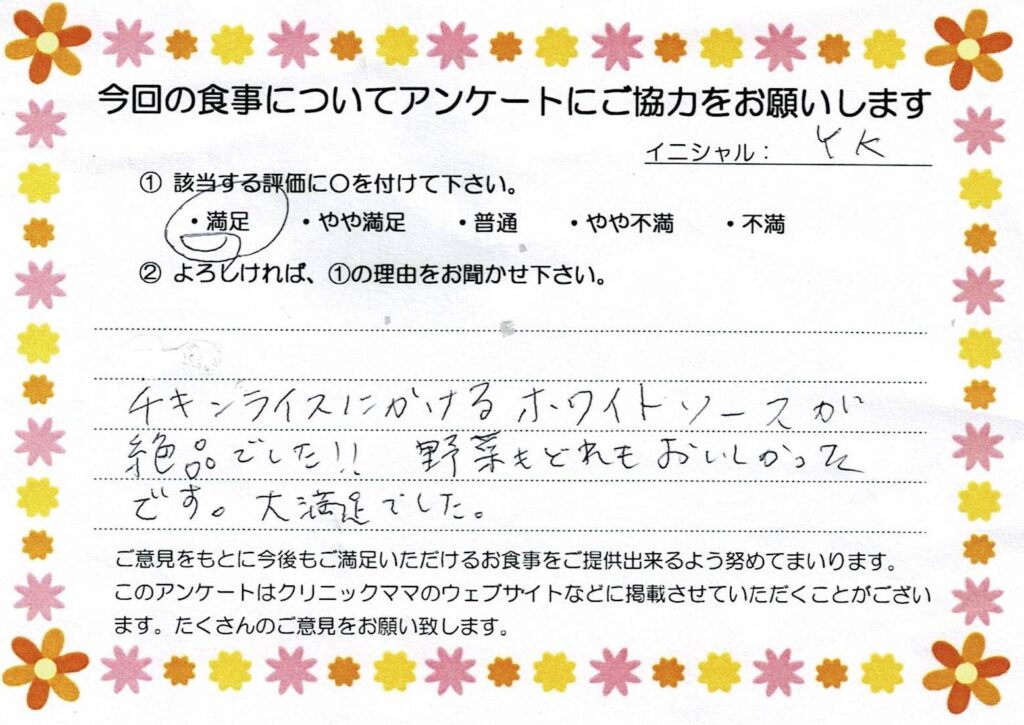 今回の食事についてアンケートにご協力をお願いします
イニシャル： YK
① 該当する評価に○を付けて下さい。
・満足 ・やや満足 ・普通 ・やや不満 ・不満
② よろしければ、①の理由をお聞かせ下さい。
チキンライスにかけるホワイトソースが
絶品でした!! 野菜もどれもおいしかった
です。大満足でした。
ご意見をもとに今後もご満足いただけるお食事をご提供出来るよう努めてまいります。
このアンケートはクリニックママのウェブサイトなどに掲載させていただくことがござい
ます。たくさんのご意見をお願い致します。